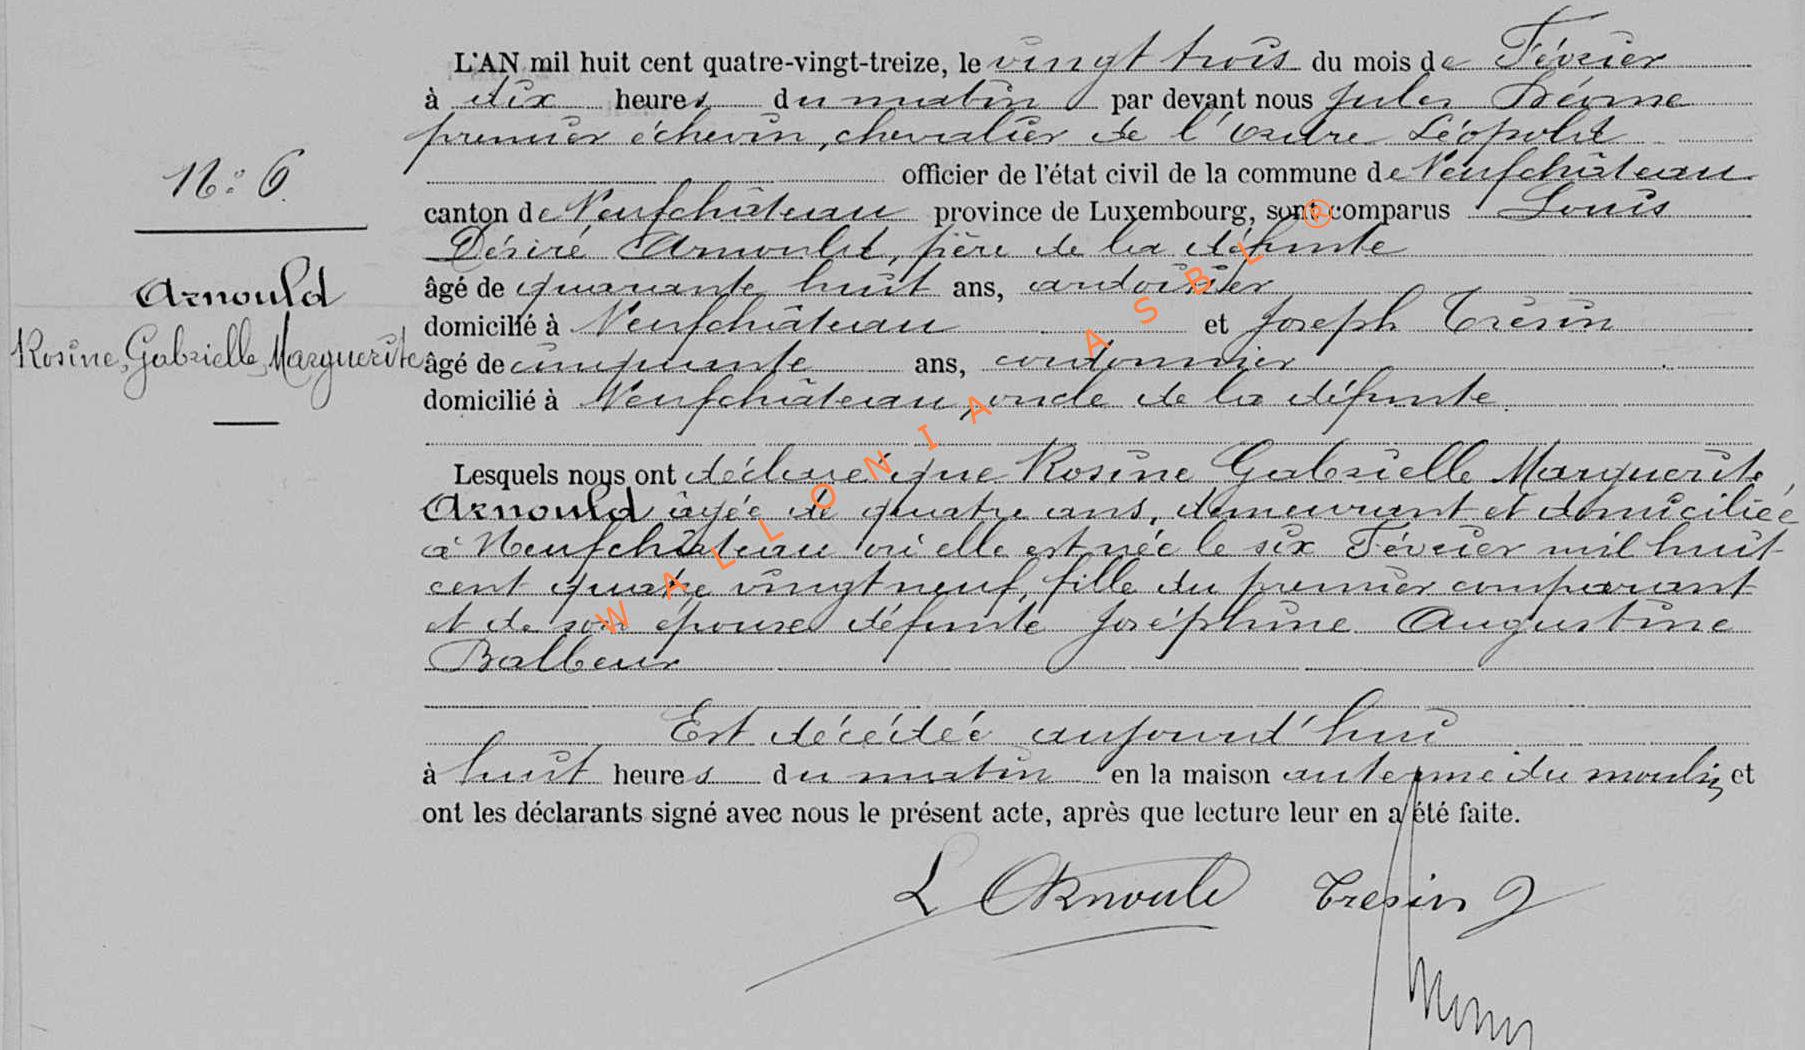 L'AN mil huit cent quatre-vingt-treize, le vingt trois du mois de Février
à dix heures du matin par devant nous Jules
premier échevin, chevalier de l'ordre Léopold
officier de l'état civil de la commune de Neufchâteau
N° 6.
canton de Neufchâteau province de Luxembourg, sont comparus Louis
Désiré Arnould, père de la défunte
Arnould
âgé de quarante huit ans,
domicilié à Neufchâteau et Joseph Trésin
Rosine, Gabrielle, Marguerite
âgé de cinquante ans, cordonnier
domicilié à Neufchâteau, oncle de la défunte.
Lesquels nous ont déclaré que Rosine Gabrielle Marguerite
Arnould âgée de quatre ans, demeurant et domiciliée
à Neufchâteau où elle est née le six Février mil huit
cent quatre vingt neuf, fille du premier comparant
et de son épouse défunte Joséphine Augustine
Balbeur
Est décédée aujourd'hui
à huit heures du matin en la maison du moulin et
ont les déclarants signé avec nous le présent acte, après que lecture leur en a été faite.
L Arnould Tresin J
WALLONIA ASBL ®